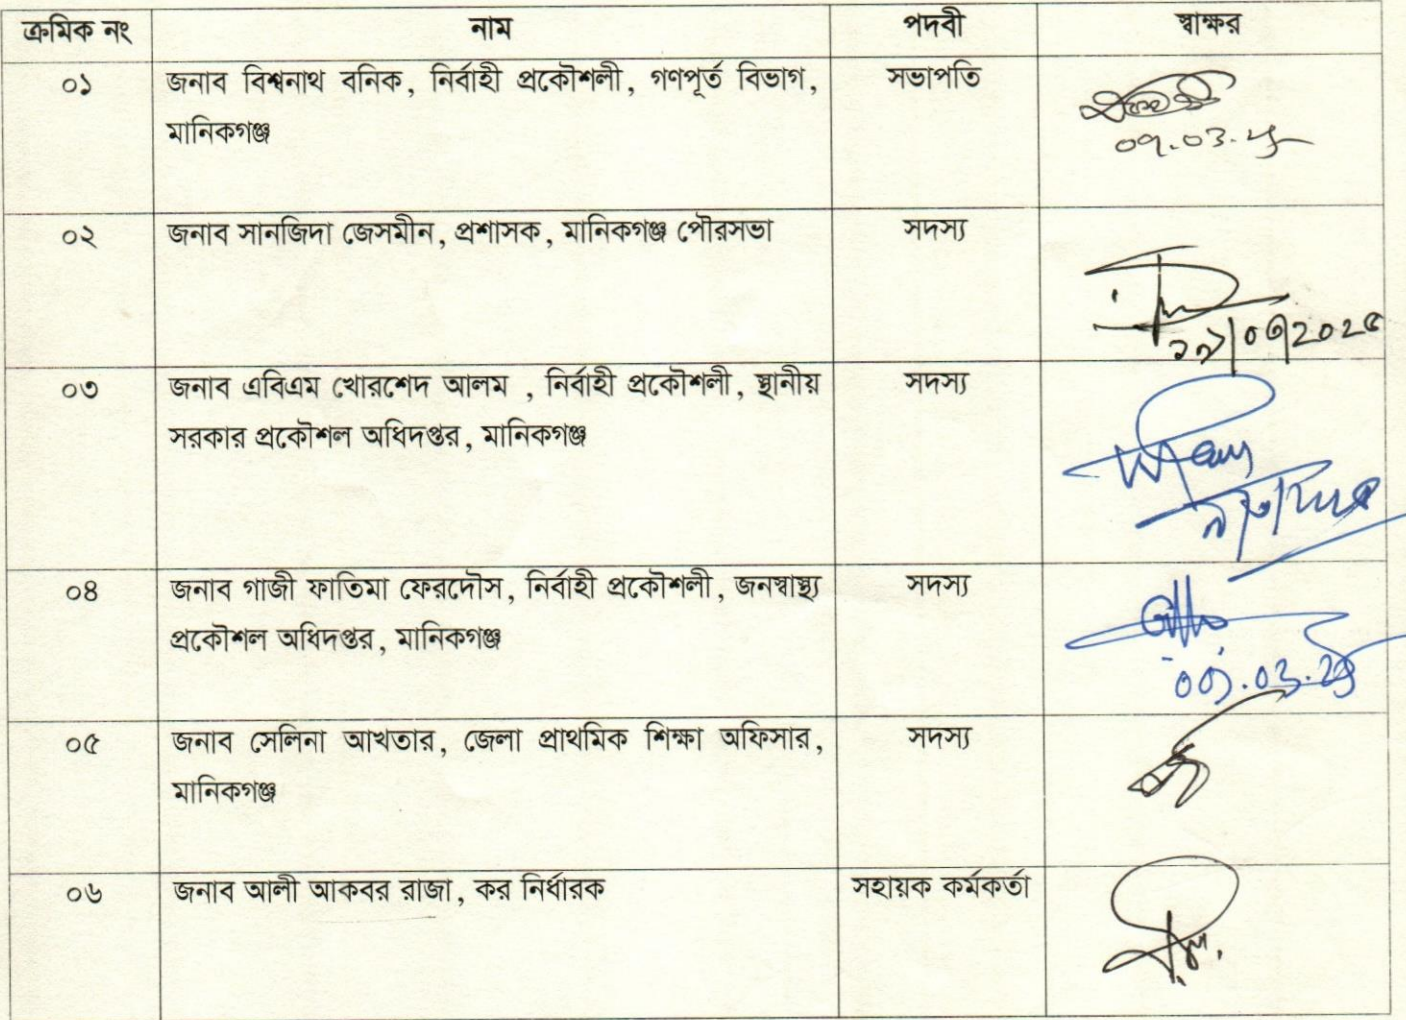 ক্রমিক নং নাম পদবী স্বাক্ষর
০১ জনাব বিশ্বনাথ বনিক, নির্বাহী প্রকৌশলী, গণপূর্ত বিভাগ, সভাপতি
মানিকগঞ্জ
০২ জনাব সানজিদা জেসমীন, প্রশাসক, মানিকগঞ্জ পৌরসভা সদস্য
০৩ জনাব এবিএম খোরশেদ আলম , নির্বাহী প্রকৌশলী, স্থানীয় সদস্য
সরকার প্রকৌশল অধিদপ্তর, মানিকগঞ্জ
০৪ জনাব গাজী ফাতিমা ফেরদৌস, নির্বাহী প্রকৌশলী, জনস্বাস্থ্য সদস্য
প্রকৌশল অধিদপ্তর, মানিকগঞ্জ
০৫ জনাব সেলিনা আখতার, জেলা প্রাথমিক শিক্ষা অফিসার, সদস্য
মানিকগঞ্জ
০৬ জনাব আলী আকবর রাজা, কর নির্ধারক সহায়ক কর্মকর্তা